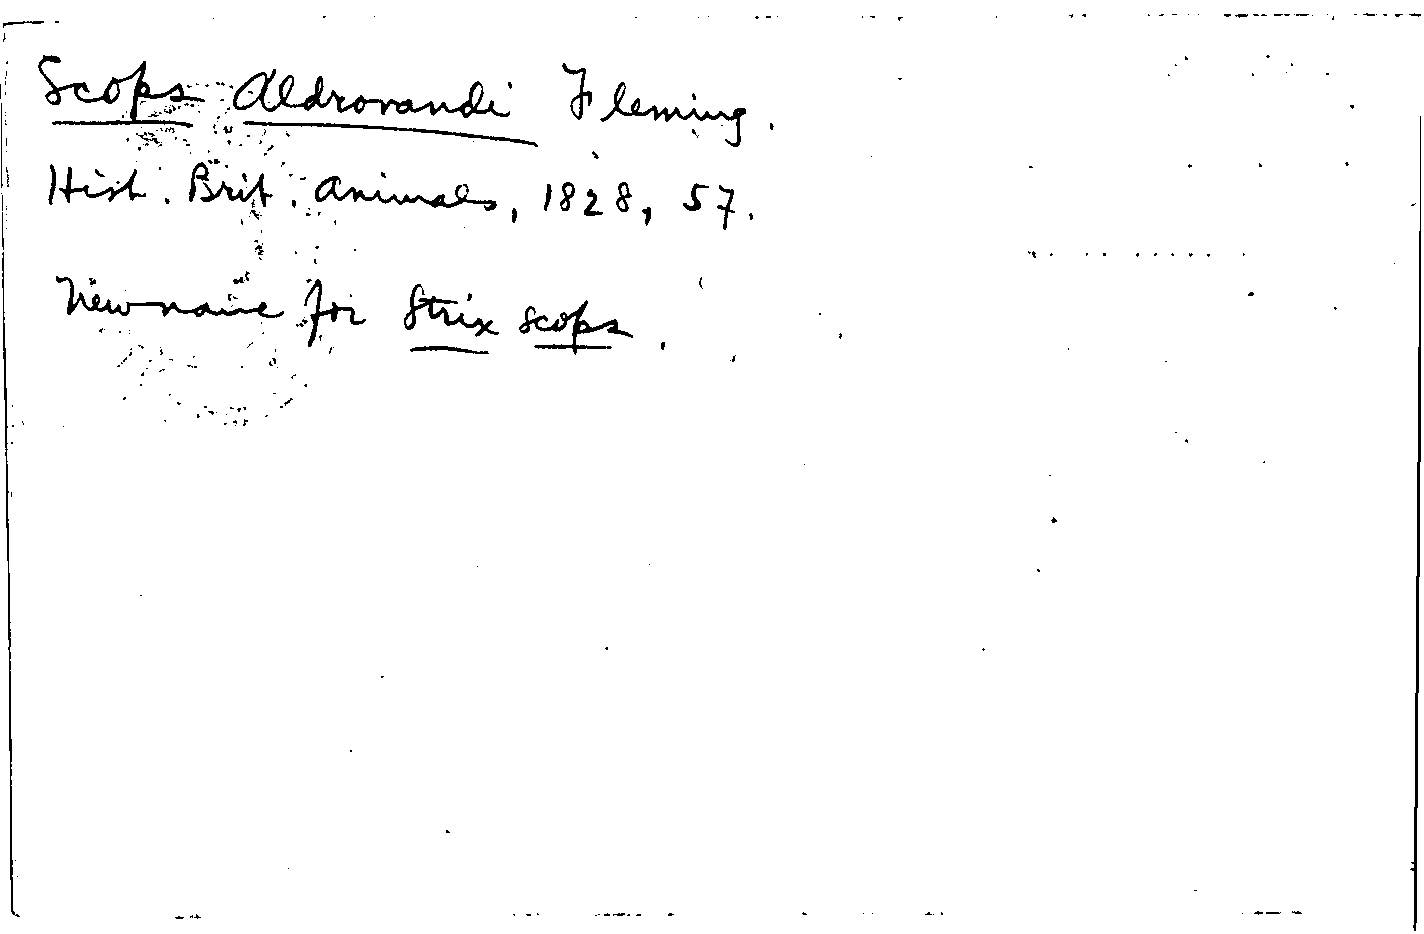 Scops Aldrovandi Fleming.
Hist. Brit. Animals, 1828, 57.
New name for Strix scops.